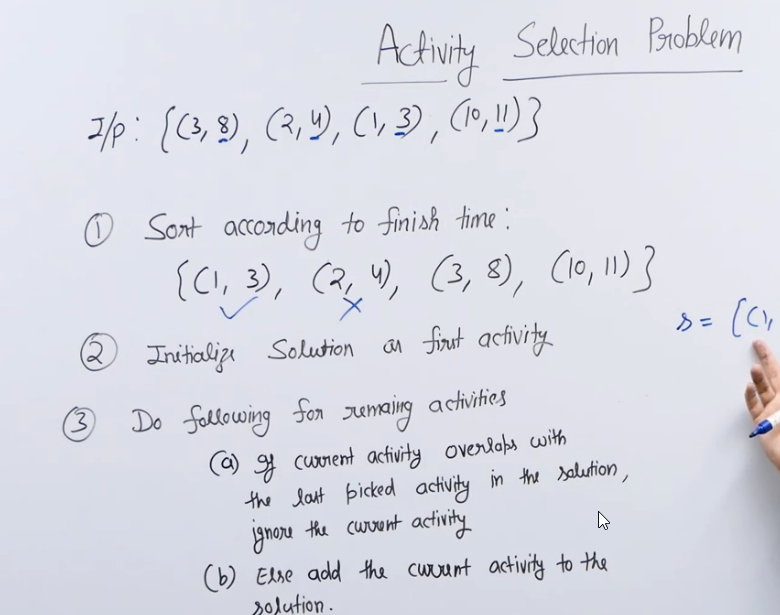 Activity Selection Problem
I/p: {(3, 8), (2, 4), (1, 3), (10, 11)}
① Sort according to finish time:
{(1, 3), (2, 4), (3, 8), (10, 11)}
② Initialize Solution as first activity
s = {(1,
③ Do following for remaing activities
(a) If current activity overlaps with
the last picked activity in the solution,
ignore the current activity
(b) Else add the current activity to the
solution.